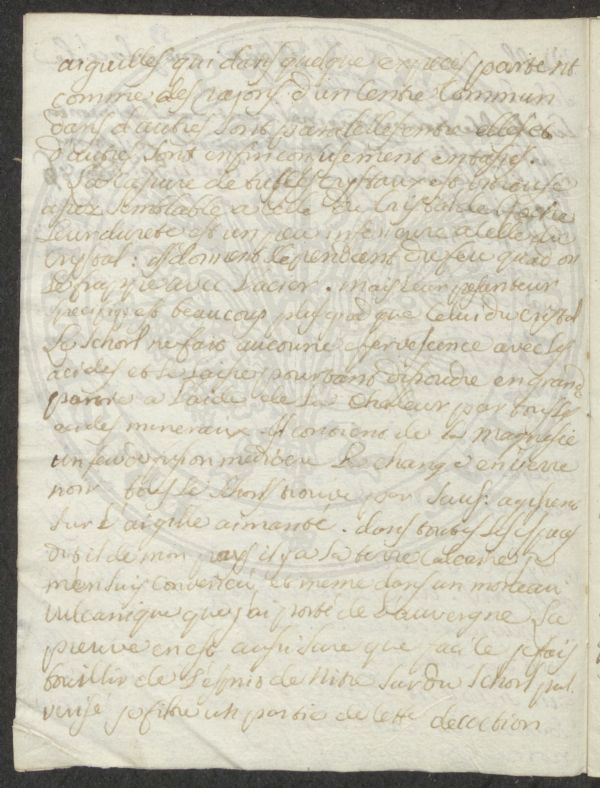 aiguilles qui dans quelque especes partent
comme des rajons d'un Centre Commun
dans d'autres sont paralleles entre elles et
d'autres sont enfin confusement entassés.
La Cassure de tubes Crystaux est vitreuse
assez semblable a celle du Cristal de Roche
Leur dureté est un peu inferieure a celle du
Crystal: ils donnent cependant du feu quand on
Le frappe avec L'acier. mais leur pesanteur
specifiq est beaucoup plus grad que celui du Cristal
Le Schorl ne fait aucoune efervescence avec les
acides et se Laches pourtant dissoudre en grand
partie a L'aide de La Chaleur par tous les
acides mineraux. il contient de La Magnesie
un feu de fusion mediocre Le change en verre
noir tous Le Schorl trouvé par Sauss. agissent
sur L'aigille aimanté. dans toutes Les espaces
dit il de mon pays il y a La terre Calcaire je
m'en suis Convencu et meme dans un morceau
Vulcanique que j'ai porté de L'auvergne La
preuve en est aussi sure que facile je fais
bouillir de L'esprit de Nitre sur du Schorl pul
verisé je filtre un partie de cette decoction